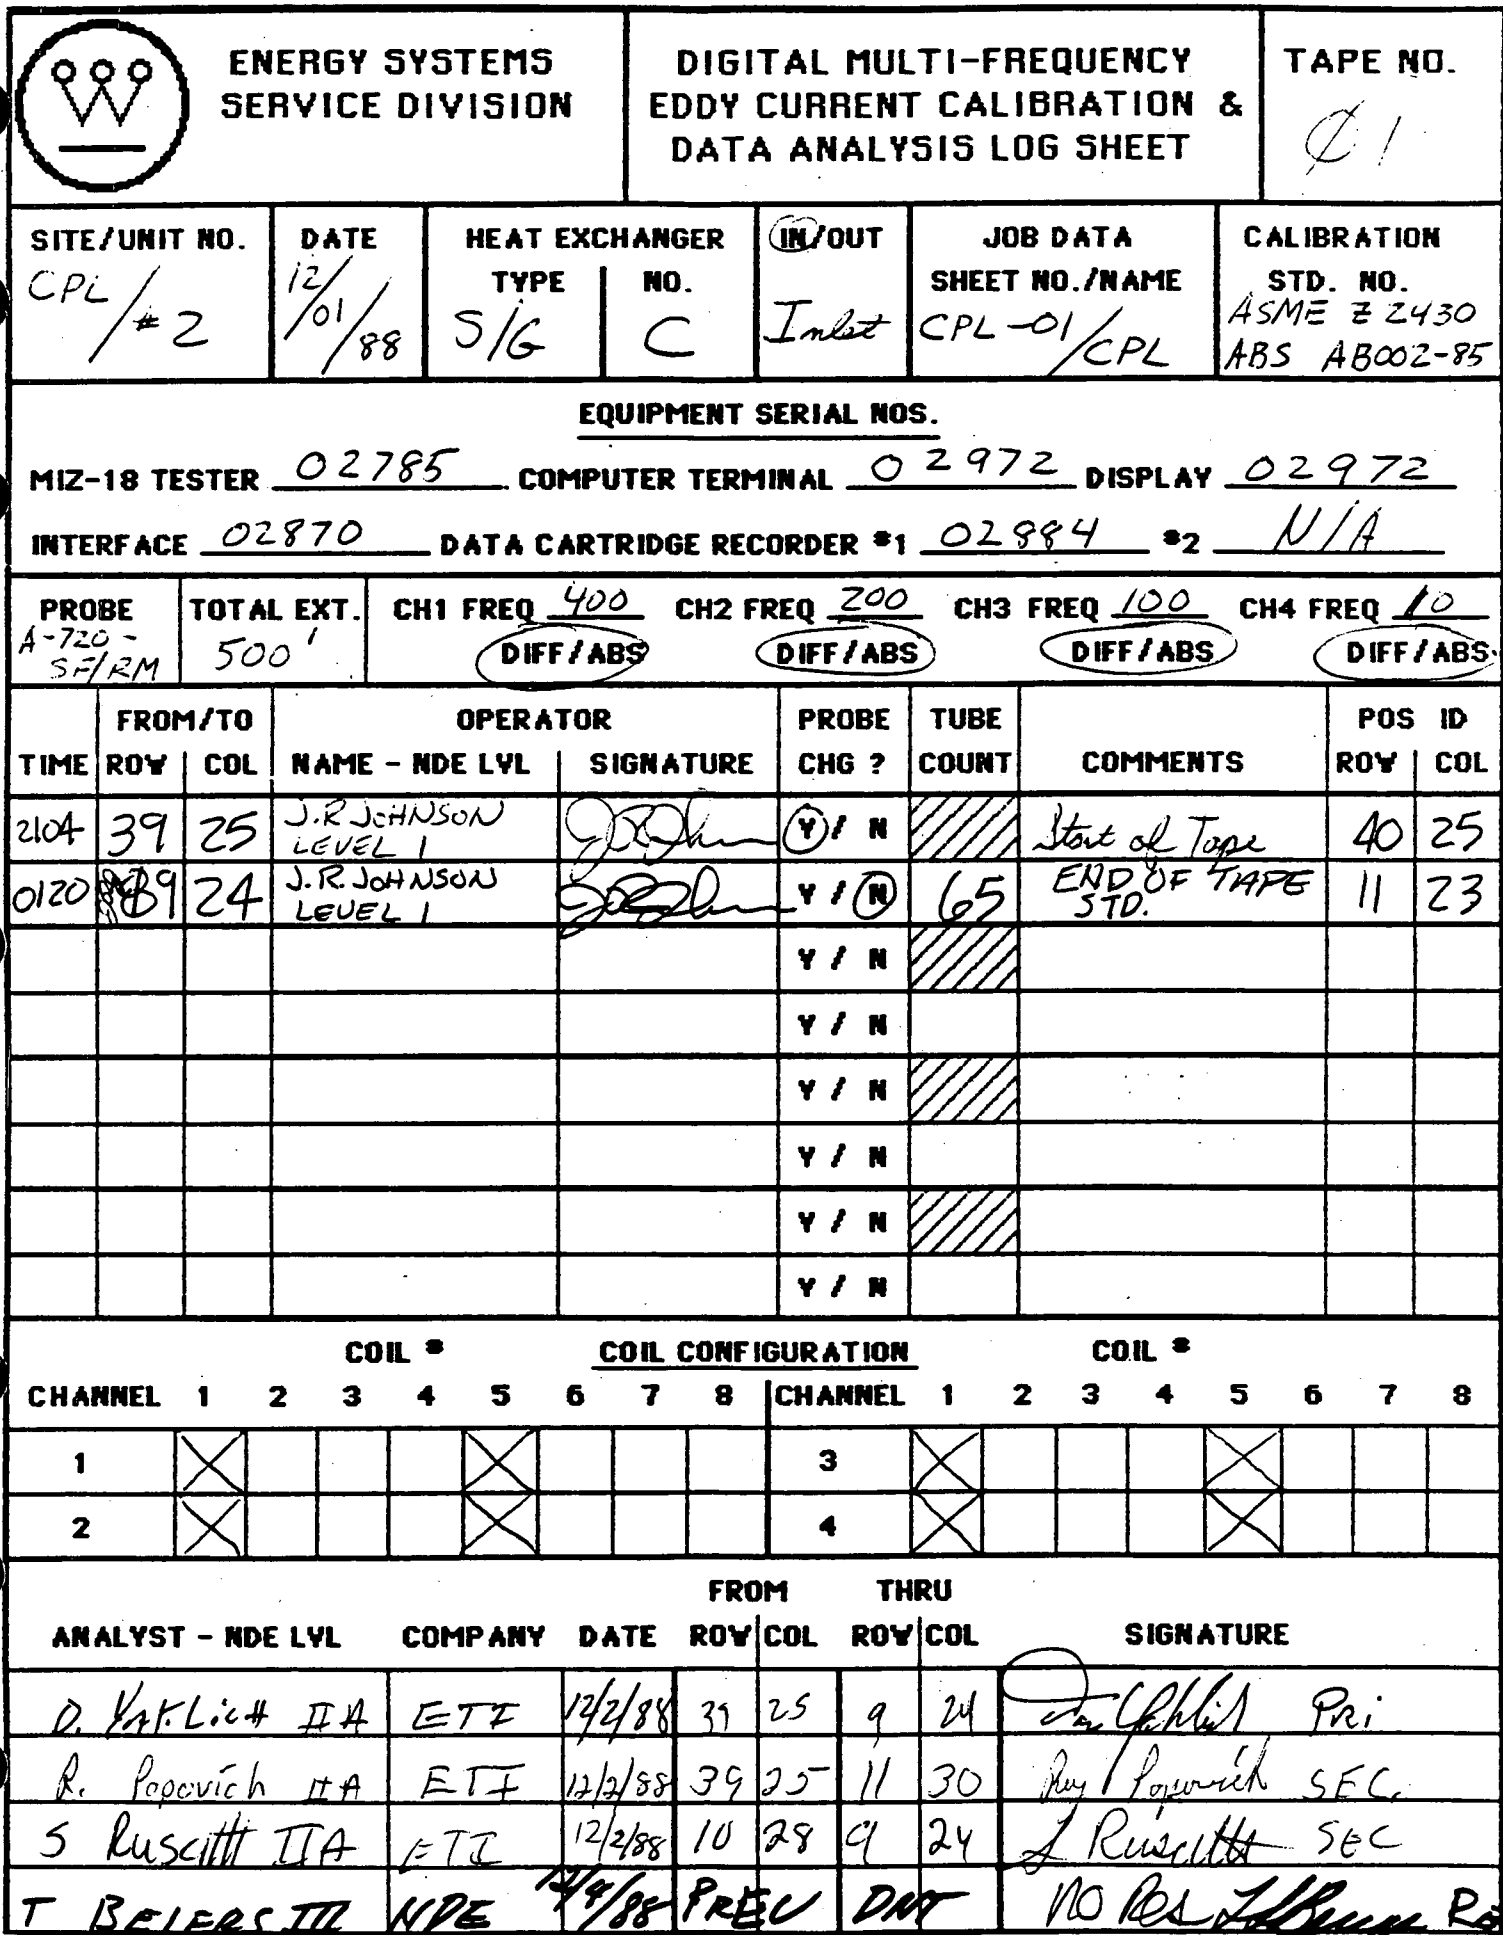 ENERGY SYSTEMS
SERVICE DIVISION
DIGITAL MULTI-FREQUENCY
EDDY CURRENT CALIBRATION &
DATA ANALYSIS LOG SHEET
TAPE NO.
01
SITE/UNIT NO.
CPL / #2
DATE
12/01/88
HEAT EXCHANGER
TYPE NO.
S/G C
IN/OUT
Inlet
JOB DATA
SHEET NO./NAME
CPL-01/CPL
CALIBRATION
STD. NO.
ASME Z 2430
ABS AB002-85
EQUIPMENT SERIAL NOS.
MIZ-18 TESTER 02785 COMPUTER TERMINAL 02972 DISPLAY 02972
INTERFACE 02870 DATA CARTRIDGE RECORDER #1 02884 #2 N/A
PROBE
A-720-
SF/RM
TOTAL EXT.
500'
CH1 FREQ 400 CH2 FREQ 200 CH3 FREQ 100 CH4 FREQ 10
DIFF/ABS DIFF/ABS DIFF/ABS DIFF/ABS
FROM/TO OPERATOR PROBE TUBE POS ID
TIME ROW COL NAME - NDE LVL SIGNATURE CHG ? COUNT COMMENTS ROW COL
2104 39 25 J.R JOHNSON LEVEL 1 Y / N Start of Tape 40 25
0120 9 24 J.R. JOHNSON LEVEL 1 Y / N 65 END OF TAPE STD. 11 23
Y / N
Y / N
Y / N
Y / N
Y / N
Y / N
COIL # COIL CONFIGURATION COIL #
CHANNEL 1 2 3 4 5 6 7 8 CHANNEL 1 2 3 4 5 6 7 8
1 3
2 4
FROM THRU
ANALYST - NDE LVL COMPANY DATE ROW COL ROW COL SIGNATURE
D. IIA ETI 12/2/88 39 25 9 24 PRi
R. Popovich IIA ETI 12/2/88 39 25 11 30 Ray Popovich SEC.
S Ruscitti IIA ETI 12/2/88 10 28 9 24 S Ruscitti SEC
T BEIERS III NDE 12/4/88 PREV DNT NO